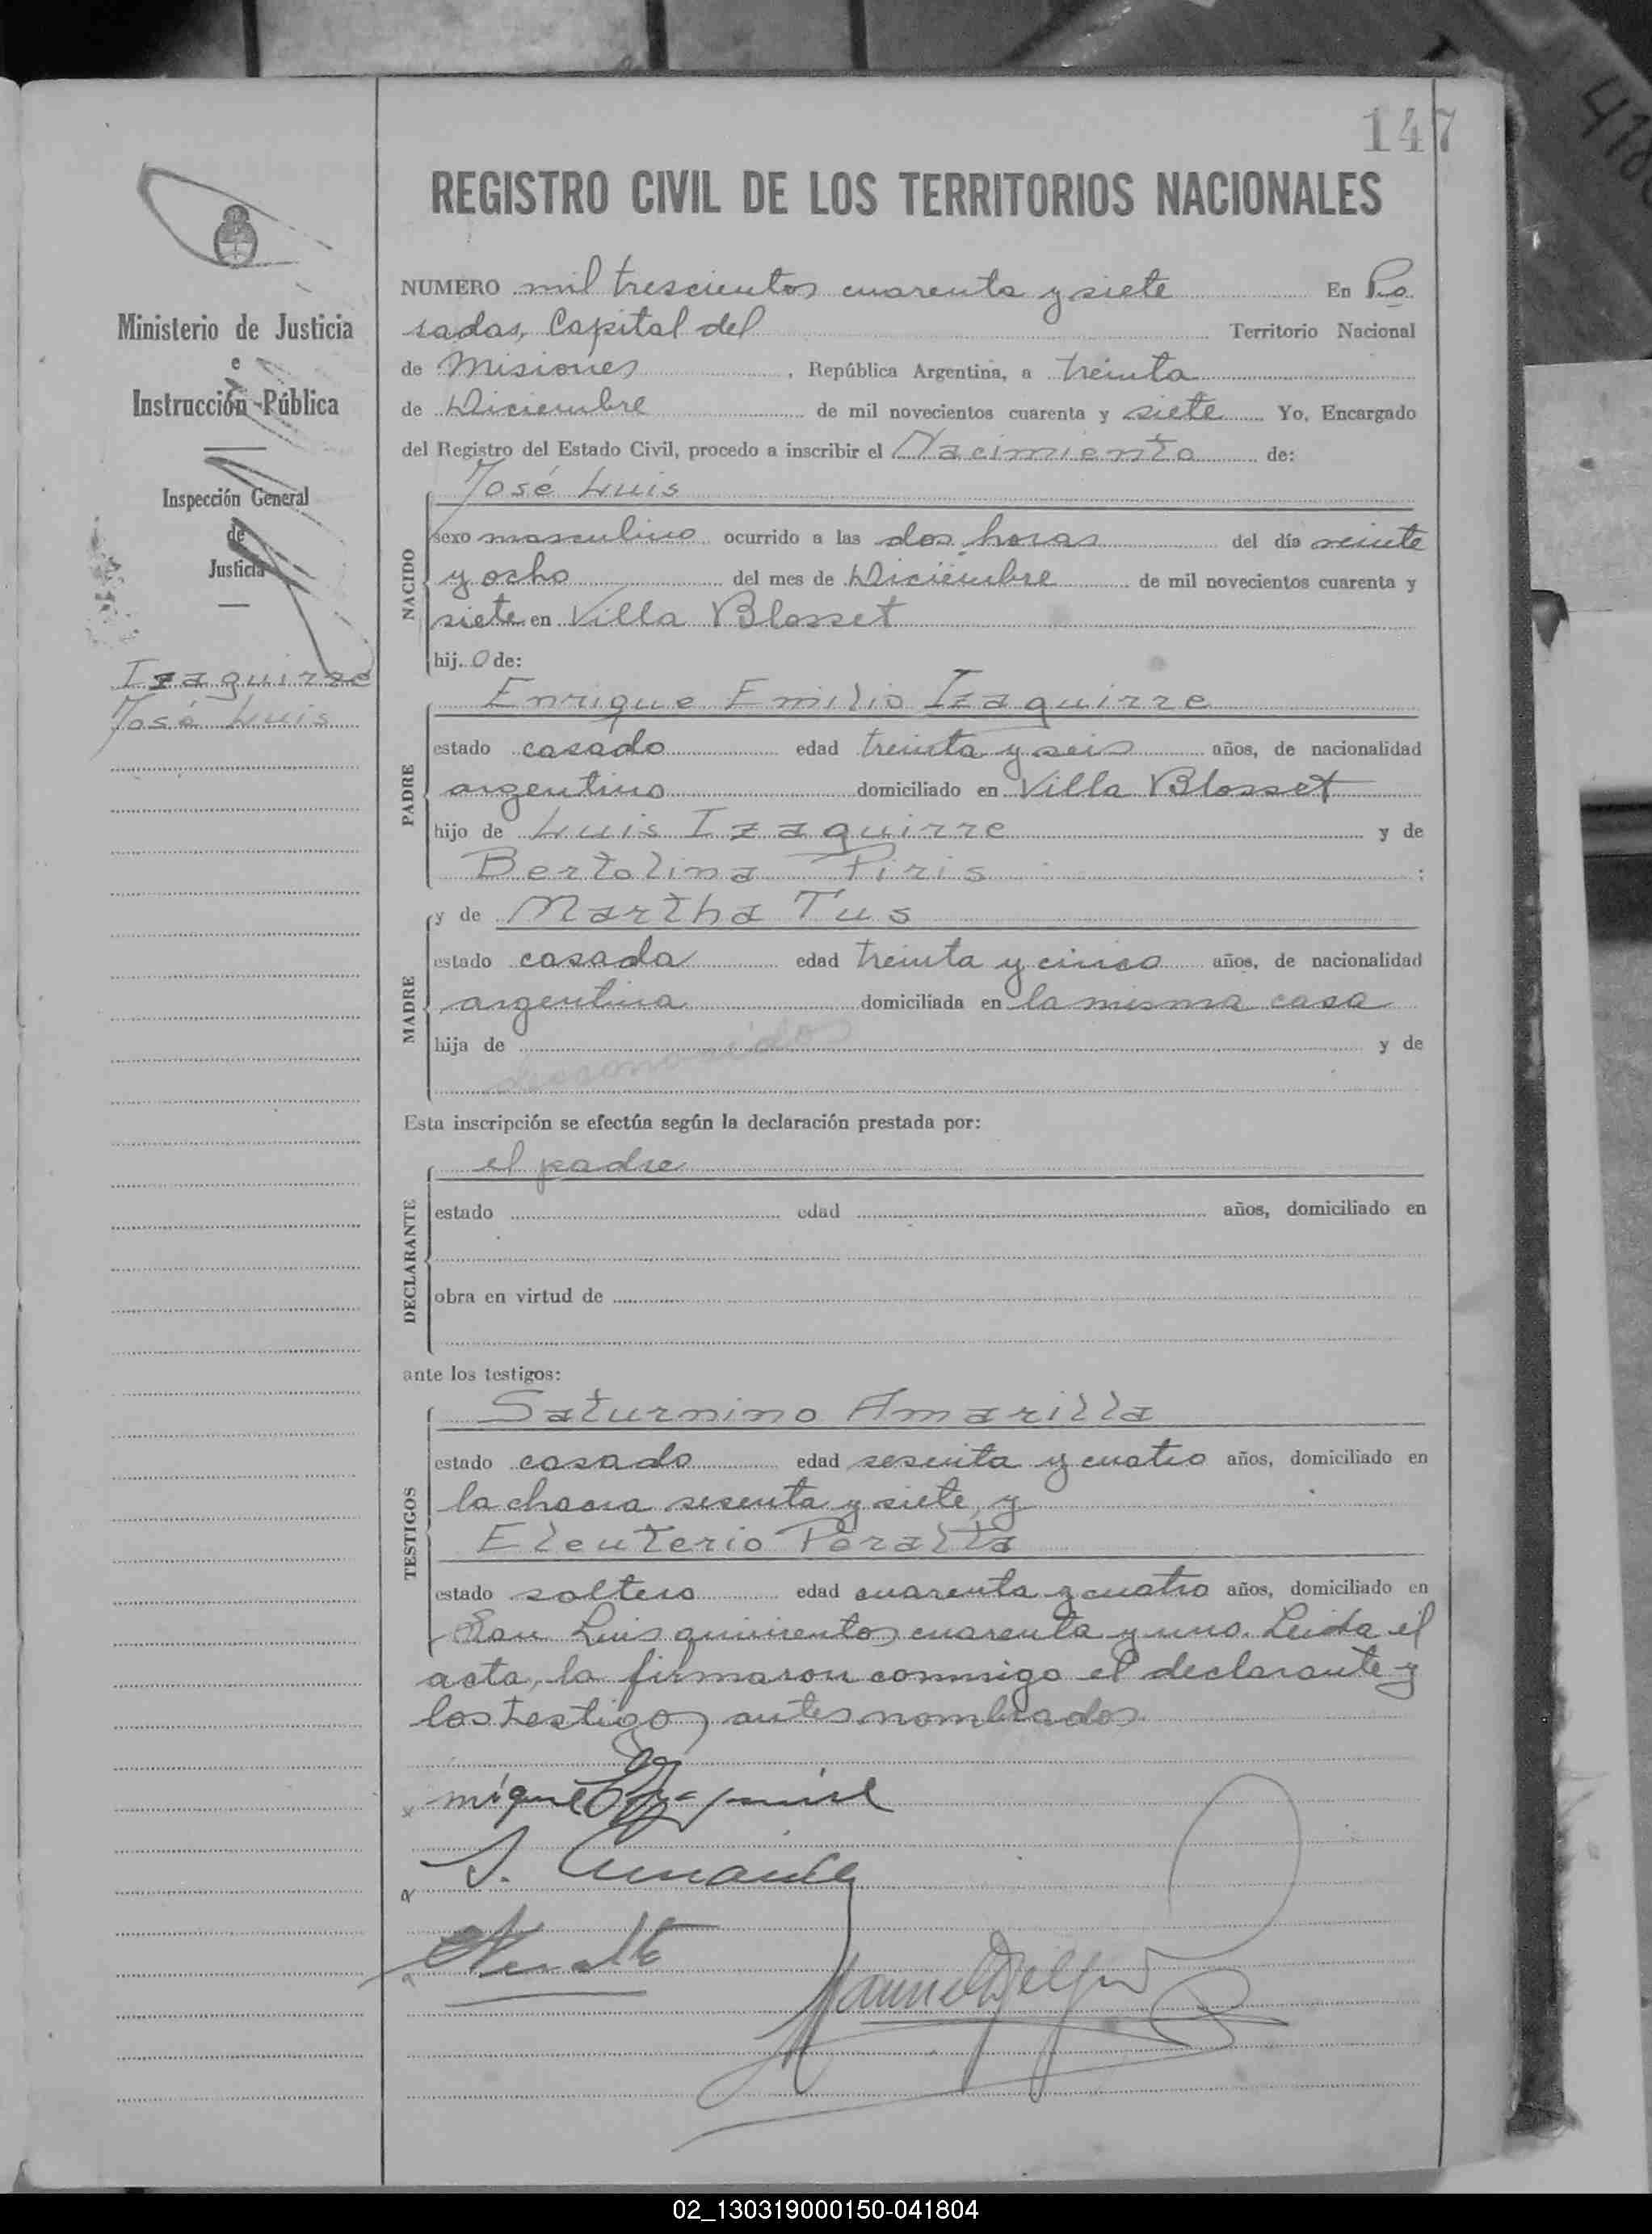 147
REGISTRO CIVIL DE LOS TERRITORIOS NACIONALES
Ministerio de Justicia
e
Instrucción Pública
Inspección General
de
Justicia
Izaguirre
José Luis
NUMERO mil trescientos cuarenta y siete En Po
sadas, Capital del Territorio Nacional
de Misiones, República Argentina, a treinta
de Diciembre de mil novecientos cuarenta y siete Yo, Encargado
del Registro del Estado Civil, procedo a inscribir el Nacimiento de:
José Luis
NACIDO
sexo masculino ocurrido a las dos horas del día veinte
y ocho del mes de Diciembre de mil novecientos cuarenta y
siete en Villa Blosset
hij. o de:
Enrique Emilio Izaguirre
PADRE
estado casado edad treinta y seis años, de nacionalidad
argentino domiciliado en Villa Blosset
hijo de Luis Izaguirre y de
Bertolina Piris ;
y de Martha Tus
MADRE
estado casada edad treinta y cinco años, de nacionalidad
argentina domiciliada en la misma casa
hija de y de
desconocidos
Esta inscripción se efectúa según la declaración prestada por:
el padre
DECLARANTE
estado edad años, domiciliado en
obra en virtud de
ante los testigos:
Saturnino Amarilla
TESTIGOS
estado casado edad sesenta y cuatro años, domiciliado en
la chacra sesenta y siete, y
Eleuterio Peralta
estado soltero edad cuarenta y cuatro años, domiciliado en
San Luis quinientos cuarenta y uno. Leida el
acta, la firmaron conmigo el declarante y
los testigos antes nombrados
02_130319000150-041804